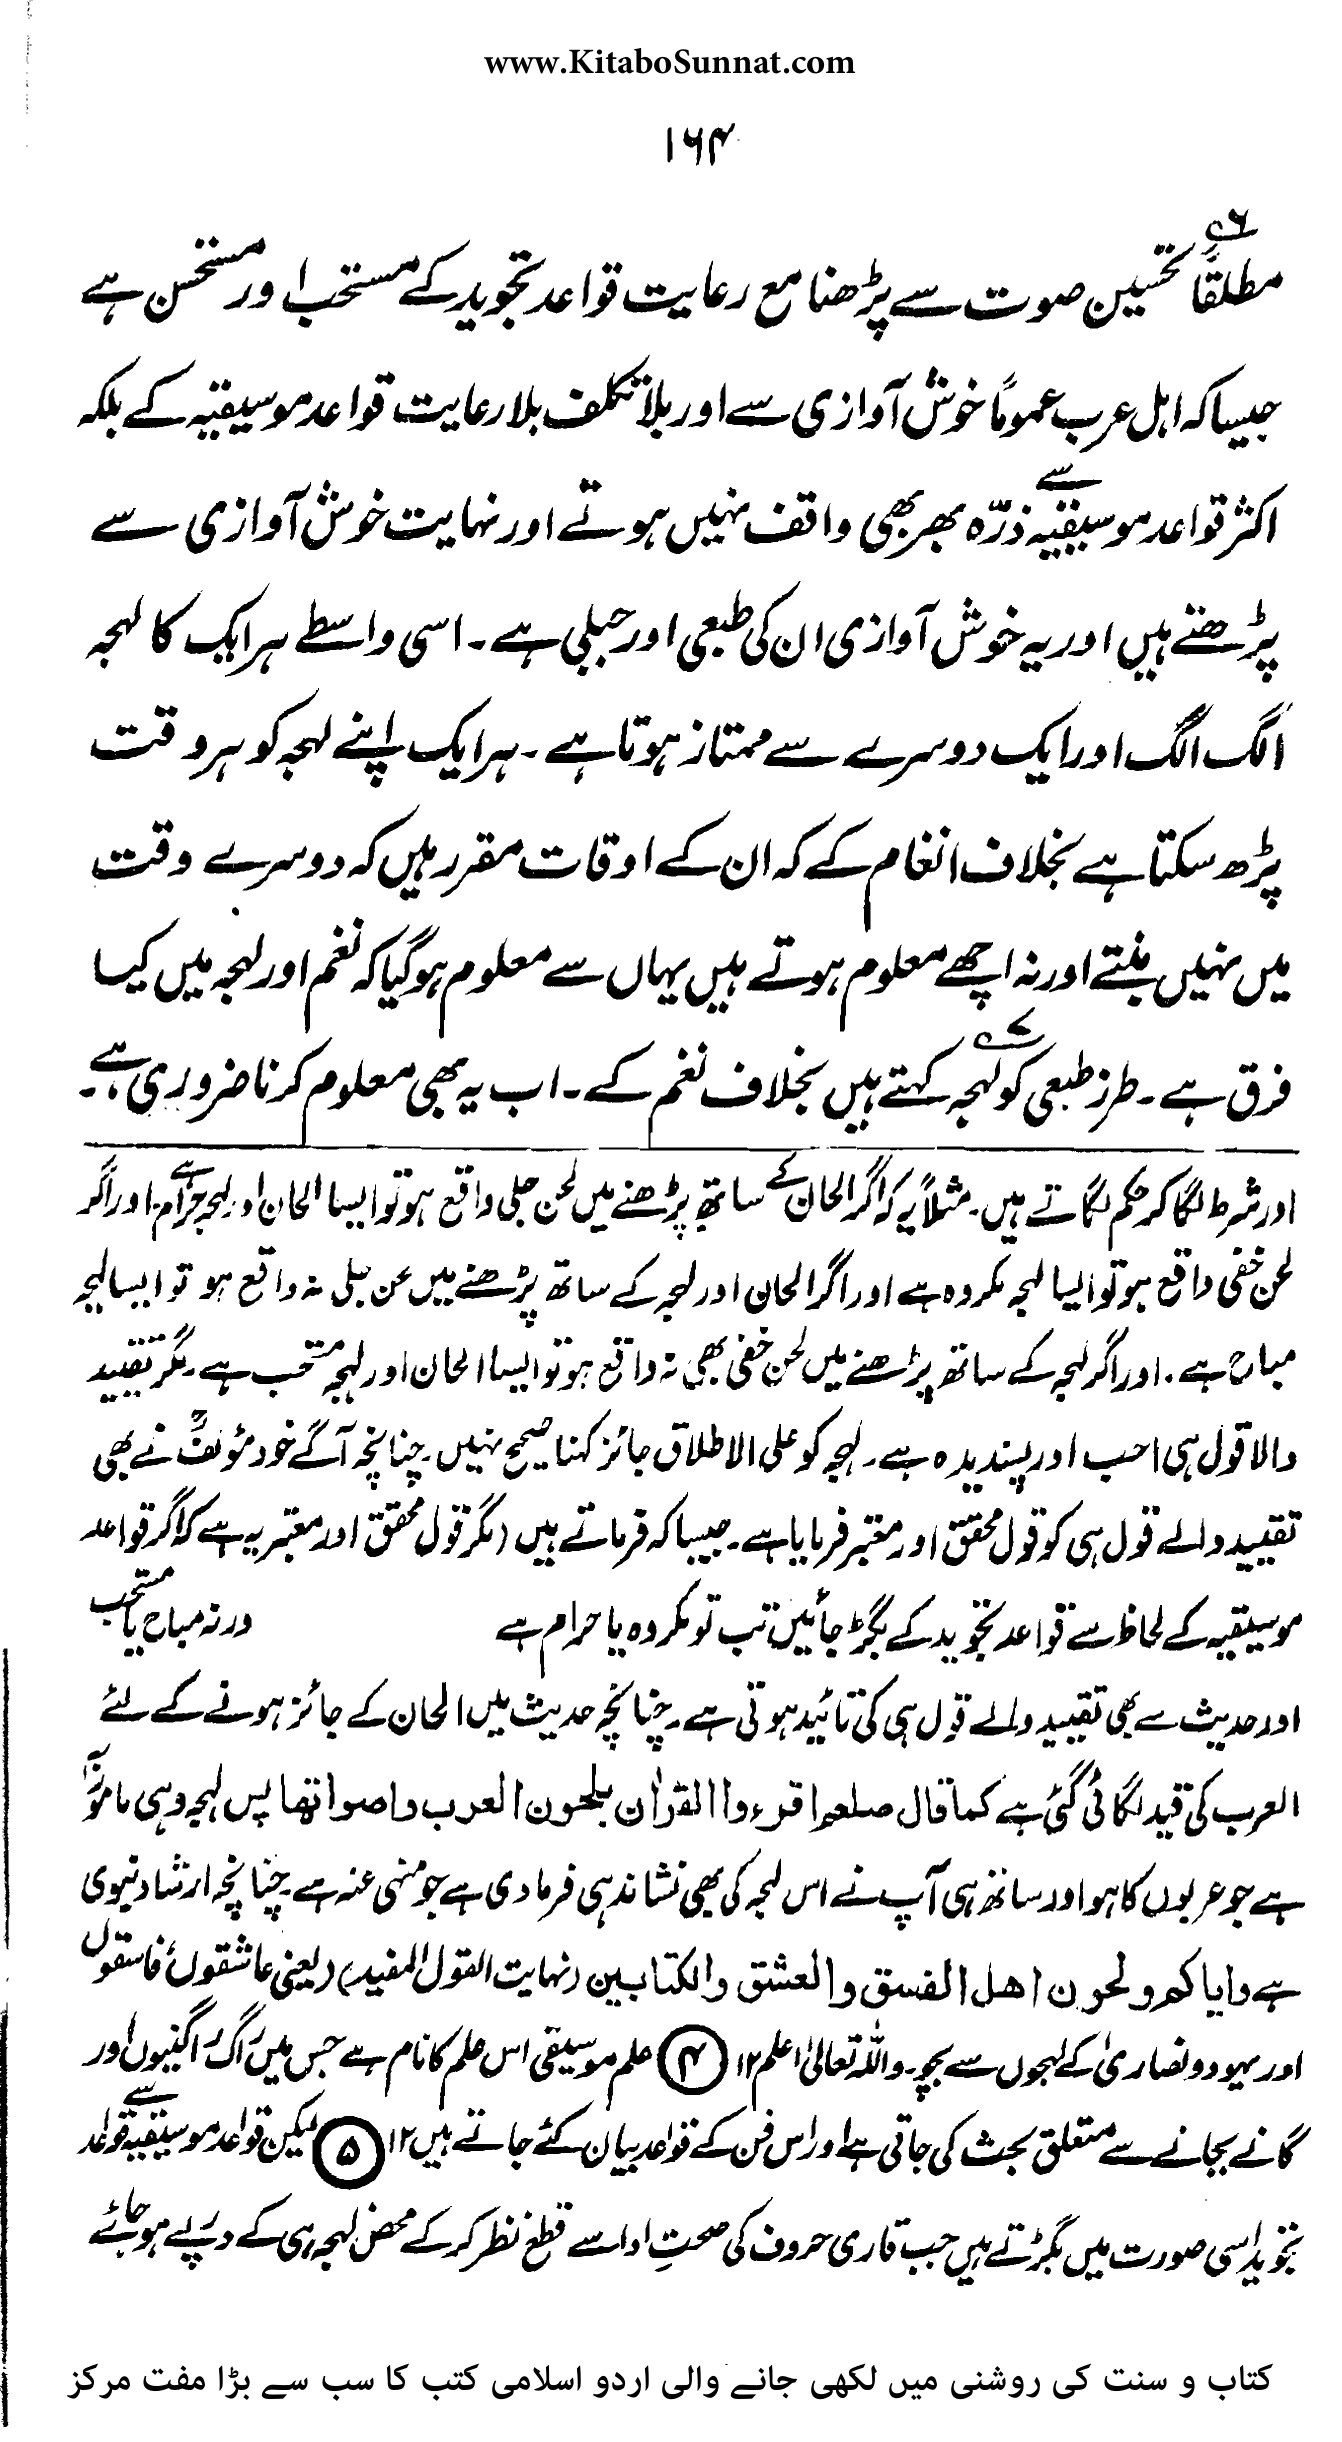 www.KitaboSunnat.com
۱۶۴
مطلقاً ۶ تحسین صوت سے پڑھنا مع رعایت قواعد تجوید کے مستحب اور مستحسن ہے
جیسا کہ اہل عرب عموماً خوش آوازی سے اور بلا تکلف بلا رعایت قواعد موسیقیہ کے بلکہ
اکثر قواعد موسیقیہ سے ذرّہ بھر بھی واقف نہیں ہوتے اور نہایت خوش آوازی سے
پڑھتے ہیں اور یہ خوش آوازی ان کی طبعی اور جبلی ہے۔ اسی واسطے ہر ایک کا لہجہ
الگ الگ اور ایک دوسرے سے ممتاز ہوتا ہے۔ ہر ایک اپنے لہجہ کو ہر وقت
پڑھ سکتا ہے بخلاف انغام کے کہ ان کے اوقات مقرر ہیں کہ دوسرے وقت
میں نہیں بنتے اور نہ اچھے معلوم ہوتے ہیں یہاں سے معلوم ہو گیا کہ نغم اور لہجہ میں کیا
فرق ہے۔ طرز طبعی کو لہجہ ۷ کہتے ہیں بخلاف نغم کے۔ اب یہ بھی معلوم کرنا ضروری ہے۔
اور شرط لگا کر حکم لگاتے ہیں۔ مثلاً یہ کہ اگر الحان کے ساتھ پڑھنے میں لحن جلی واقع ہو تو ایسا الحان اور لہجہ حرام ہے اور اگر
لحن خفی واقع ہو تو ایسا لہجہ مکروہ ہے اور اگر الحان اور لہجہ کے ساتھ پڑھنے میں لحن جلی نہ واقع ہو تو ایسا لہجہ
مباح ہے۔ اور اگر لہجہ کے ساتھ پڑھنے میں لحن خفی بھی نہ واقع ہو تو ایسا الحان اور لہجہ مستحب ہے۔ مگر تقیید
والا قول ہی احب اور پسندیدہ ہے۔ لہجہ کو علی الاطلاق جائز کہنا صحیح نہیں۔ چنانچہ آگے خود مؤلفؒ نے بھی
تقیید والے قول ہی کو قول محقق اور معتبر فرمایا ہے۔ جیسا کہ فرماتے ہیں (مگر قول محقق اور معتبر یہ ہے کہ اگر قواعد
موسیقیہ کے لحاظ سے قواعد تجوید کے بگڑ جائیں تب تو مکروہ یا حرام ہے ورنہ مباح یا مستحب
اور حدیث سے بھی تقیید والے قول ہی کی تائید ہوتی ہے۔ چنانچہ حدیث میں الحان کے جائز ہونے کے لئے
العرب کی قید لگائی گئی ہے کما قال صلعم اقرءوا القرآن بلحون العرب واصواتها پس لہجہ وہی ماموراً
ہے جو عربوں کا ہو اور ساتھ ہی آپ نے اس لہجہ کی بھی نشاندہی فرما دی ہے جو منہی عنہ ہے۔ چنانچہ ارشاد نبوی
ہے وایاکم ولحون اهل الفسق والعشق والکتابین (نہایت القول المفید) (یعنی عاشقوں، فاسقوں
اور یہود و نصاریٰ کے لہجوں سے بچو۔ واللہ تعالیٰ اعلم ۱۲ ④ علم موسیقی اس علم کا نام ہے جس میں راگ راگنیوں اور
گانے بجانے سے متعلق بحث کی جاتی ہے اور اس فن کے قواعد بیان کئے جاتے ہیں ۱۲ ⑤ لیکن قواعد موسیقیہ سے قواعد
تجوید اسی صورت میں بگڑتے ہیں جب قاری حروف کی صحتِ ادا سے قطع نظر کر کے محض لہجہ ہی کے درپے ہو جائے
کتاب و سنت کی روشنی میں لکھی جانے والی اردو اسلامی کتب کا سب سے بڑا مفت مرکز